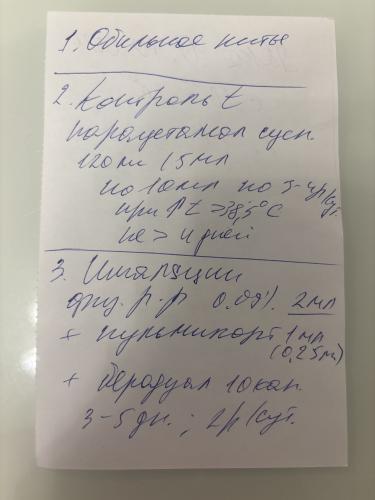 1. Обильное питье
2. Контроль t
парацетамол сусп.
120 мл / 5 мл
по 10 мл по 3-4 р/сут.
при ↑ t > 38,5°C
не > 4 дней
3. Ингаляции
физ. р-р 0.09% 2 мл
+ пульмикорт 1 мл
(0,25 мг)
+ беродуал 10 кап.
3-5 дн. ; 2 р/сут.